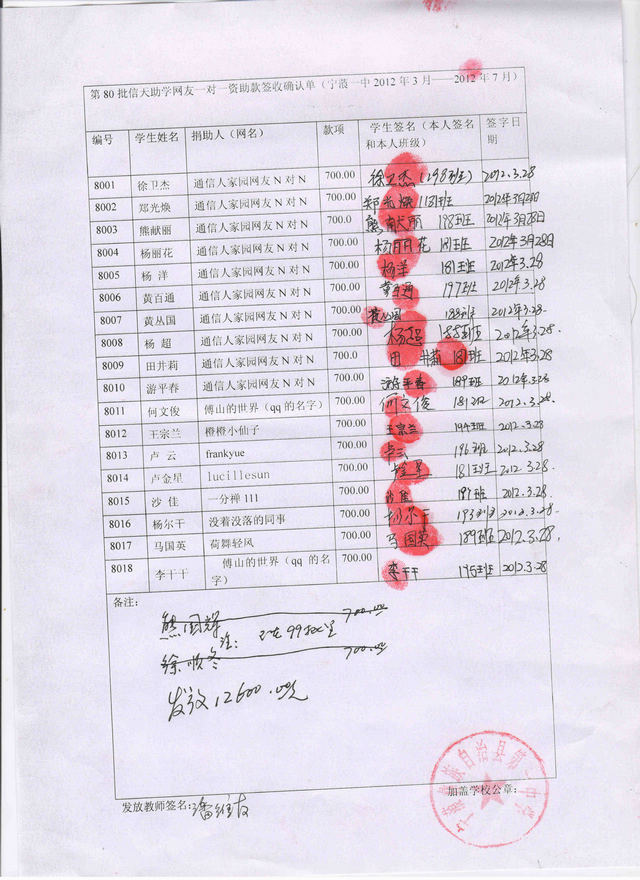 第80批信天助学网友一对一资助款签收确认单（宁蒗一中2012年3月——2012年7月）
编号 学生姓名 捐助人（网名） 款项 学生签名（本人签名和本人班级） 签字日期
8001 徐卫杰 通信人家园网友N对N 700.00 徐卫杰（198班） 2012.3.28
8002 郑光焕 通信人家园网友N对N 700.00 郑光焕 181班 2012年3月28日
8003 熊献丽 通信人家园网友N对N 700.0 熊献丽 198班 2012年3月28日
8004 杨丽花 通信人家园网友N对N 700.00 杨丽花 181班 2012年3月28日
8005 杨 洋 通信人家园网友N对N 700.00 杨洋 181班 2012年3.28
8006 黄百通 通信人家园网友N对N 700.00 黄百通 197班 2012年3.28
8007 黄丛国 通信人家园网友N对N 700.00 黄丛国 188班 2012年3.28.
8008 杨 超 通信人家园网友N对N 700.00 杨超 188班 2012年3.28.
8009 田井莉 通信人家园网友N对N 700.0 田井莉 181班 2012年3.28
8010 游平春 通信人家园网友N对N 700.00 游平春 189班 2012年3.28
8011 何文俊 傅山的世界（qq的名字） 700.00 何文俊 181班 2012.3.28.
8012 王宗兰 橙橙小仙子 700.00 王宗兰 194班 2012.3.28.
8013 卢 云 frankyue 700.00 卢云 196班 2012.3.28
8014 卢金星 lucillesun 700.00 卢金星 181班 2012.3.28.
8015 沙 佳 一分禅111 700.00 沙佳 197班 2012.3.28.
8016 杨尔干 没着没落的同事 700.00 杨尔干 193班 2012.3.28.
8017 马国英 荷舞轻风 700.00 马国英 189班 2012.3.28.
8018 李干干 傅山的世界（qq的名字） 700.00 李干干 195班 2012.3.28
备注：
熊国辉 700.00
注：现在99批里
徐顺冬 700.00
发放12600.00元
发放教师签名：潘维友 加盖学校公章：
宁蒗彝族自治县第一中学